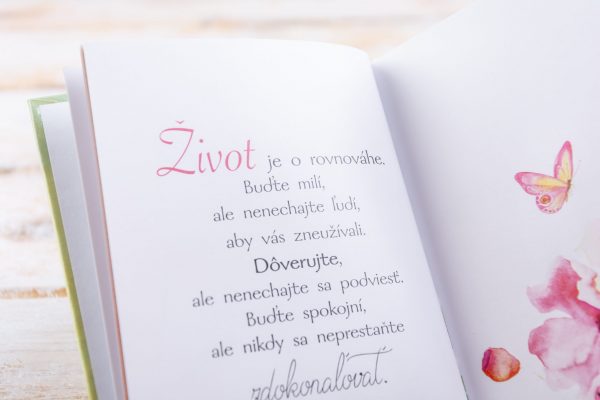 Život je o rovnováhe.
Buďte milí,
ale nenechajte ľudí,
aby vás zneužívali.
Dôverujte,
ale nenechajte sa podviesť.
Buďte spokojní,
ale nikdy sa neprestaňte
zdokonaľovať.